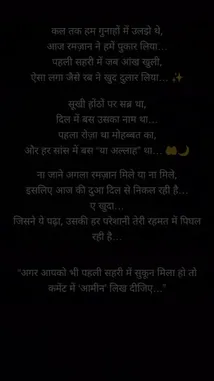 कल तक हम गुनाहों में उलझे थे,
आज रमज़ान ने हमें पुकार लिया…
पहली सहरी में जब आंख खुली,
ऐसा लगा जैसे रब ने खुद दुलार लिया… ✨
सूखी होंठों पर सब्र था,
दिल में बस उसका नाम था…
पहला रोज़ा था मोहब्बत का,
और हर सांस में बस “या अल्लाह” था… 🤲🌙
ना जाने अगला रमज़ान मिले या ना मिले,
इसलिए आज की दुआ दिल से निकल रही है…
ए खुदा…
जिसने ये पढ़ा, उसकी हर परेशानी तेरी रहमत में पिघल
रही है…
“अगर आपको भी पहली सहरी में सुकून मिला हो तो
कमेंट में ‘आमीन’ लिख दीजिए…”